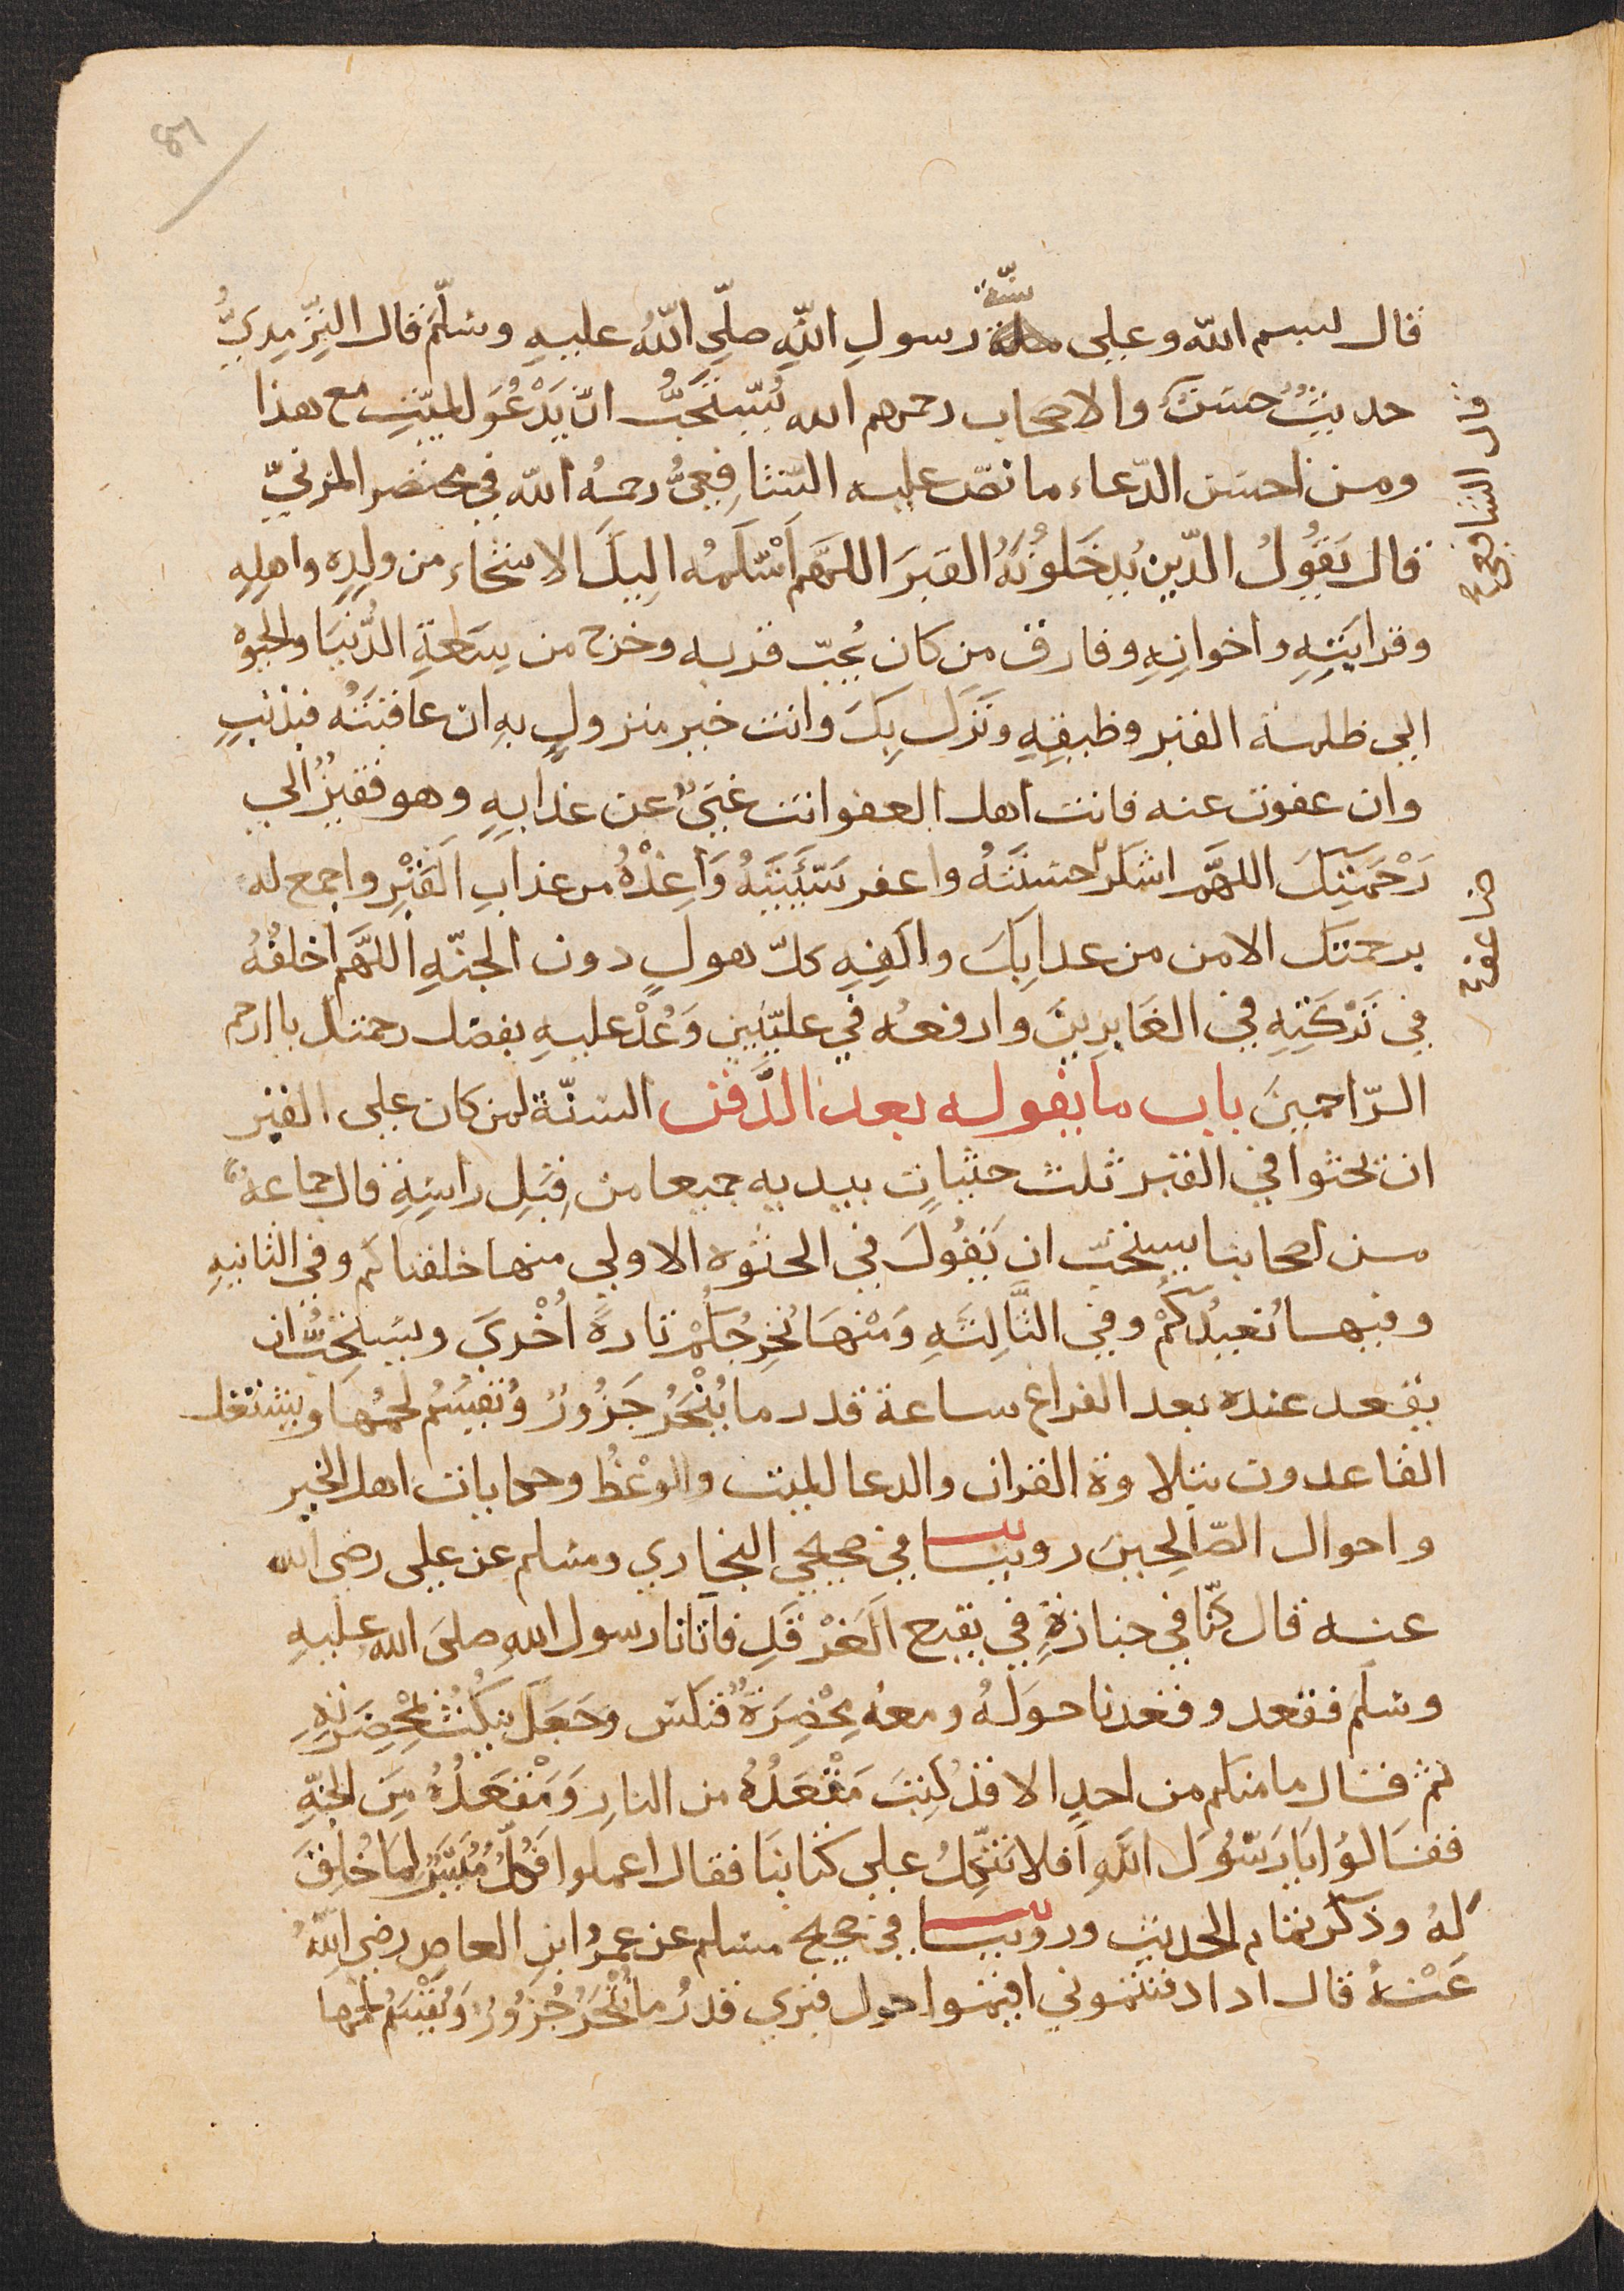 قال بسم الله وعلى سنّة رسولِ اللهِ صلّى اللهُ عليهِ وسلّم قال الترمذيُّ
حديثٌ حسَنٌ والاصحاب رحمهم الله يُستحَبُّ انْ يَدْعُوَ للميّتِ مع هذا
ومن احسَن الدّعاء ما نصّ عليه الشّافِعيُّ رحمهُ الله في مختصر المزنيّ
قال يَقُولُ الذّين يُدخِلونَهُ القبرَ اللهمَّ اَسْلَمهُ اِليكَ الاشحّاء من ولدِهِ واهلِهِ
وقرابَتِهِ واخوانِهِ وفارق من كان يُحبّ قربه وخرج من سَعةِ الدُّنيَا والحيوة
الى ظلمة القبر وضيقِهِ ونَزَل بِكَ وانت خير منزولٍ بهِ ان عاقبتَهُ فبذنبٍ
وان عفوت عنه فانت اهل العفو انت غَنيٌّ عن عذابِهِ وهو فقيرٌ الى
رَحْمَتِكَ اللهمَّ اشكر حسَنَتَهُ واغفر سَيّئَتَهُ وَاَعِذْهُ من عذابِ القَبْرِ واجمع له
برحمتك الامن من عذابِكَ واكفِهِ كلّ هولٍ دون الجنّةِ اللهمَّ اخلفْهُ
فِي تَرْكَتِهِ في الغَابِرِينَ وارفعهُ في علّيّين وَعُدْ عليهِ بفضل رحمتك يا ارحم
الرّاحمينَ باب ما يقوله بعد الدَّفن السنّة لمن كان على القبر
ان يحثوا في القبر ثلث حثياتٍ بيديه جميعا من قِبَلِ راسِهِ قال جماعةٌ
من اصحابنا يستحبّ ان يَقُولَ في الحثوة الاولى منها خلقناكم وفي الثانيهِ
وفيها نُعيدُكمْ وفي الثَّالِثَهِ وَمْنهَا نُخرِجُكُمْ تارةً اُخْرىَ ويستحبُّ ان
يقعد عنده بعد الفراغ ساعة قدر ما يُنْحَرُ جَزُورٌ ويُقسَمُ لحمُها ويشتغل
القاعدون بتلاوة القران والدعا للميت والوعْظ وحكايات اهل الخير
واحوال الصّالِحينَ روينا في صحيحي البخاري ومسلم عن علي رضى الله
عنه قال كنّا في جنازةٍ في بقيع الغَرْقَدِ فاتانا رسول اللهِ صلىَ الله عليهِ
وسلم فقعد وقعدنا حوَلهُ ومعهُ مِخْصَرَةٌ فنكس وجَعَلَ يَنكُتُ بمخْصَرَتِهِ
ثم قال ما منكم من احدٍ الا قدْ كُتِبَ مَقْعَدُهُ من النارِ وَمَقْعَدُهُ مِنَ الجنّهِ
فقَالوُا يَا رَسُولَ اللهِ اَفلا نتّكلُ على كتابنَا فقال اعملوا فكُلٌّ مُيَسَّرٌ لِمَا خُلِقَ
لهُ وذكر تمام الحديث وروينا في صحيح مسلم عن عمرُو ابنِ العاصِ رضي اللهُ
عَنْهُ قال اذا دفنتموني اقيموا حول قبري قدرُ ما يُنْحَرُ جُزُورٌ وَيُقْسَمُ لحمها
قال الشافعيّ